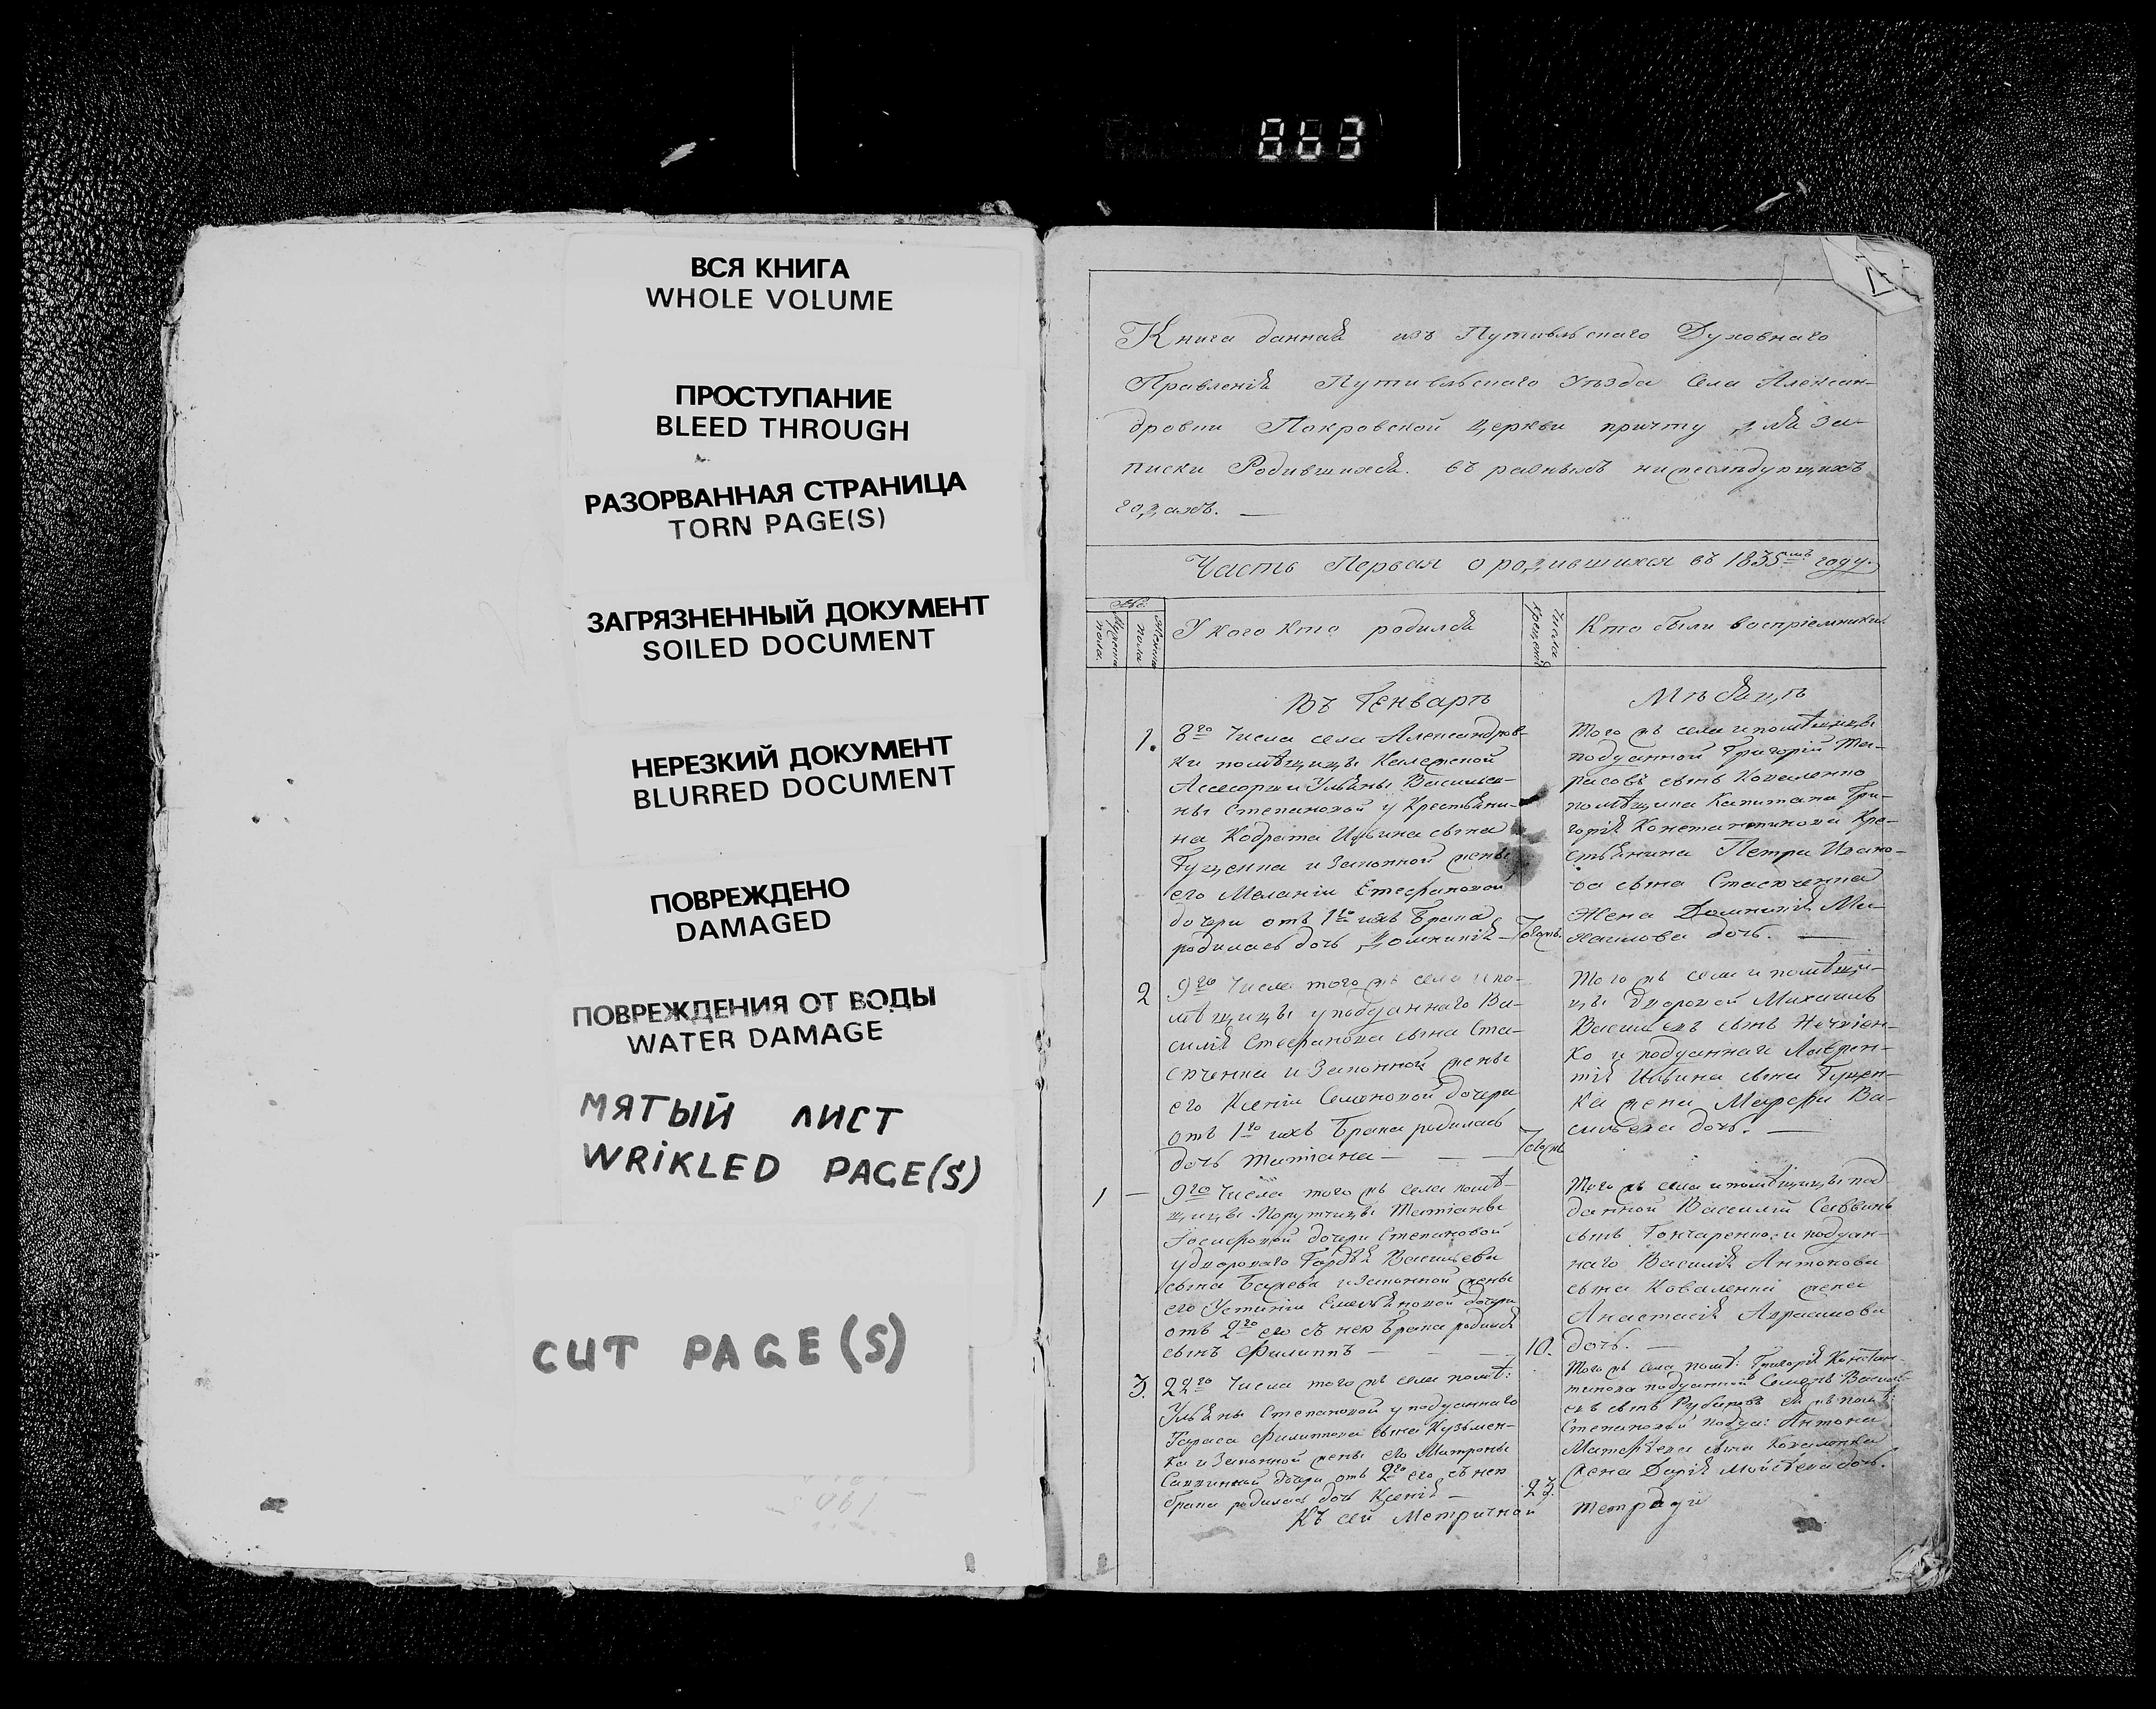 863
ВСЯ КНИГА
WHOLE VOLUME
ПРОСТУПАНИЕ
BLEED THROUGH
РАЗОРВАННАЯ СТРАНИЦА
TORN PAGE(S)
ЗАГРЯЗНЕННЫЙ ДОКУМЕНТ
SOILED DOCUMENT
НЕРЕЗКИЙ ДОКУМЕНТ
BLURRED DOCUMENT
ПОВРЕЖДЕНО
DAMAGED
ПОВРЕЖДЕНИЯ ОТ ВОДЫ
WATER DAMAGE
МЯТЫЙ ЛИСТ
WRiKLED PAGE(S)
CUT PAGE(S)
Книга данная изъ Путивльскаго Духовнаго
Правленія Путивльскаго Уѣзда Села Алексан-
дровки Покровской церкви причту для за-
писки Родившихся. въ разныхъ нижеслѣдующихъ
годахъ. —
Часть Первая о родившихся въ 1835мъ году.
Мужеска пола.
Женска пола
У кого кто родился
Числа крещенія
Кто были воспріемники
Въ Генварѣ
Мѣсяцѣ
1. 8го Числа села Александров-
ки помѣщицы Колежской
Асесорши Ульяны Васильев-
ны Степановой у Крестьяни-
на Кодрата Ильина сына
Гущенка и Законной жены
его Меланіи Стефановой
дочери отъ 1го ихъ Брака
родилась дочь Домникія —
Того жъ села и помѣщицы
подданной Григорій Та-
расовъ сынъ Коваленко
помѣщика Капитана Гри-
горія Константинова Кре-
стьянина Петра Ивано-
ва сына Стасюченка
Жена Домникія Ми-
хаилова дочь. —
2 9го Числа того жъ села и по-
мѣщицы у подданнаго Ва-
силія Стефанова сына Ста-
сюченка и Законной жены
его Ксеніи Семеновой дочери
отъ 1го ихъ Брака родилась
дочь Татіана — — —
Того жъ села и помѣщи-
цы Дворовой Михаилъ
Васильевъ сынъ
ко и подданнаго Лаврен-
тія Ильина сына Гущен-
ка жена Марфа Ва-
сильева дочь. —
1 — 9го Числа того жъ села помѣ-
щицы Порутчицы Татіаны
Іосифовой дочери Степановой
у двороваго Гордѣя Васильева
сына и Законной жены
его Устиніи Емельяновой дочери
отъ 2го его съ нею Брака родился
сынъ Филиппъ — — — 10.
Того жъ села и помѣщицы под-
данной Василій Саввинъ
сынъ Гончаренко, и поддан-
наго Василія Антонова
сына Коваленка жена
Анастасія Абрамова
дочь. —
3. 22го Числа того жъ села помѣ:
Ульяны Степановой у подданнаго
Тараса Филиппова сына Кузьмен-
ка и Законной жены его Матроны
Саввиной дочери отъ 2го его съ нею
брака родилась дочь Ксенія — 23.
Того жъ села помѣ: Григорія Констан-
тинова подданной Семенъ Василь-
евъ сынъ
Степановой подда: Антона
Матвѣева сына Коваленка
жена Дарія Моисѣева дочь.
Къ сей Метричной тетради